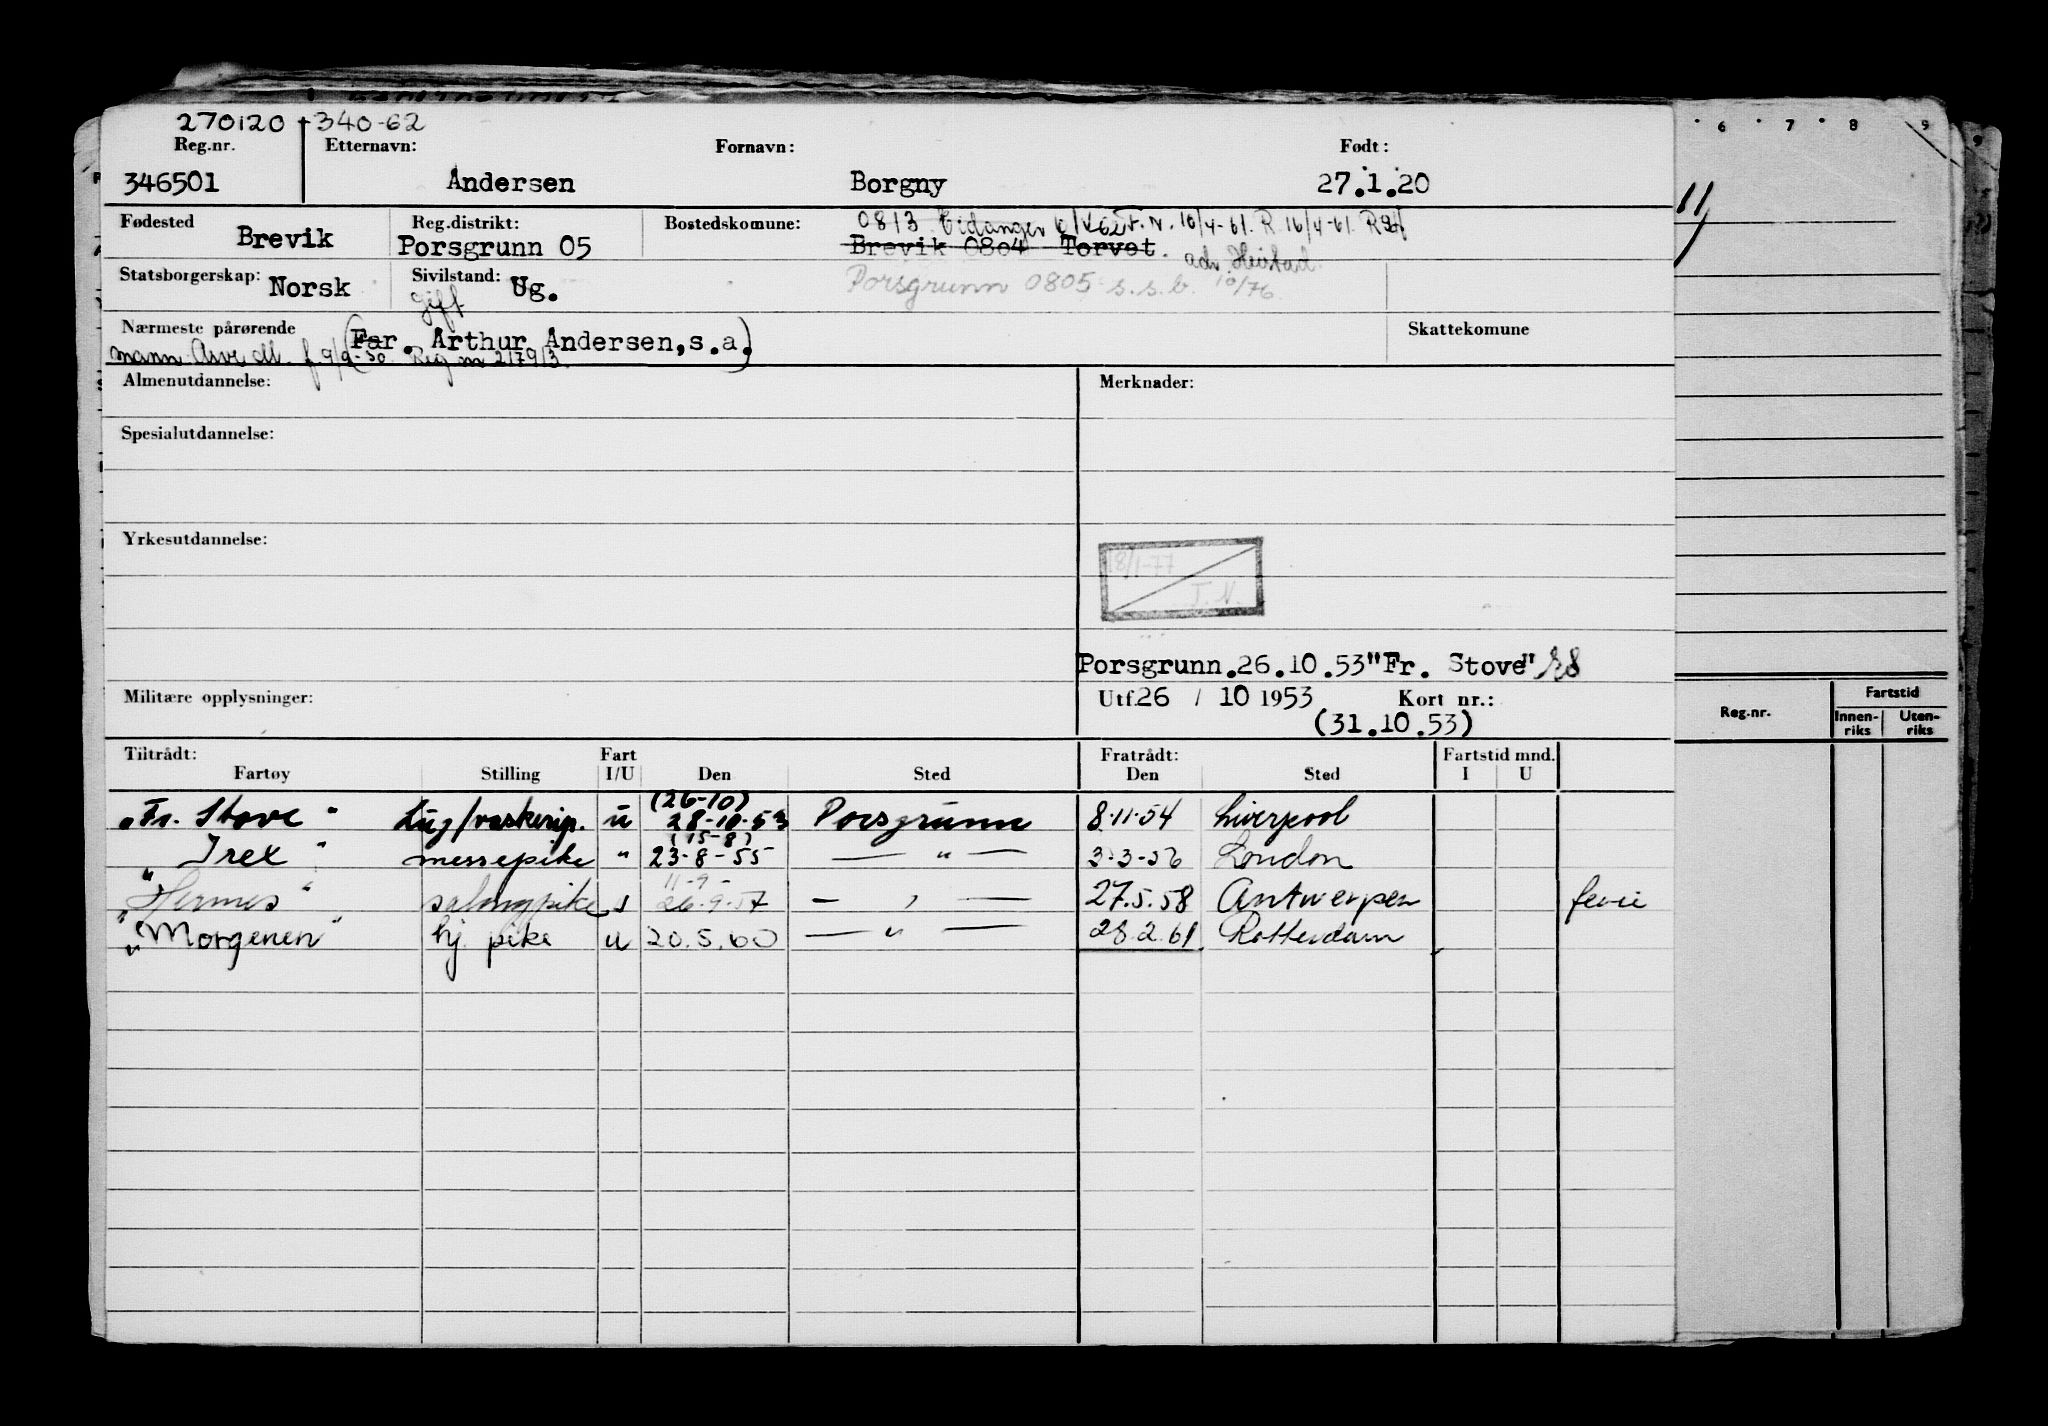 270120 340-62
Reg.nr. Etternavn: Fornavn: Født:
346501 Andersen Borgny 27.1.20
Fødested Brevik Reg.distrikt: Porsgrunn 05 Bostedskomune: 0813 Eidanger 10/4-61. R 16/4-61. R
Brevik 0804 Torvet. adr. Heistad.
Statsborgerskap: Norsk Sivilstand: Ug. Porsgrunn 0805 s.s.b. 10/76
Gift
Nærmeste pårørende (Far. Arthur Andersen, s.a.) Skattekomune
mann f 9/9-30. Reg nr 217913.
Almenutdannelse: Merknader:
Spesialutdannelse:
Yrkesutdannelse:
18/1-77
J. N.
Porsgrunn.26.10.53"Fr. Stove"
Militære opplysninger: Utf.26 / 10 1953 Kort nr.:
(31.10.53)
Tiltrådt: Fart Fratrådt: Fartstid mnd.
Fartøy Stilling I/U Den Sted Den Sted I U
(26-10)
"Fr. Stove" Lug/vaskerip. u 28-10-53 Porsgrunn 8.11.54 Liverpool
(15-8)
"Irex" messepike " 23-8-55 — " — 3-3-56 London
11-9-
"Hermes" salongpike 26.9.57 — " — 27.5.58 Antwerpen ferie
"Morgenen" hj. pike u 20.5.60 — " — 28.2.61 Rotterdam
6 7 8 9
11
Reg.nr. Fartstid
Innen-riks Uten-riks